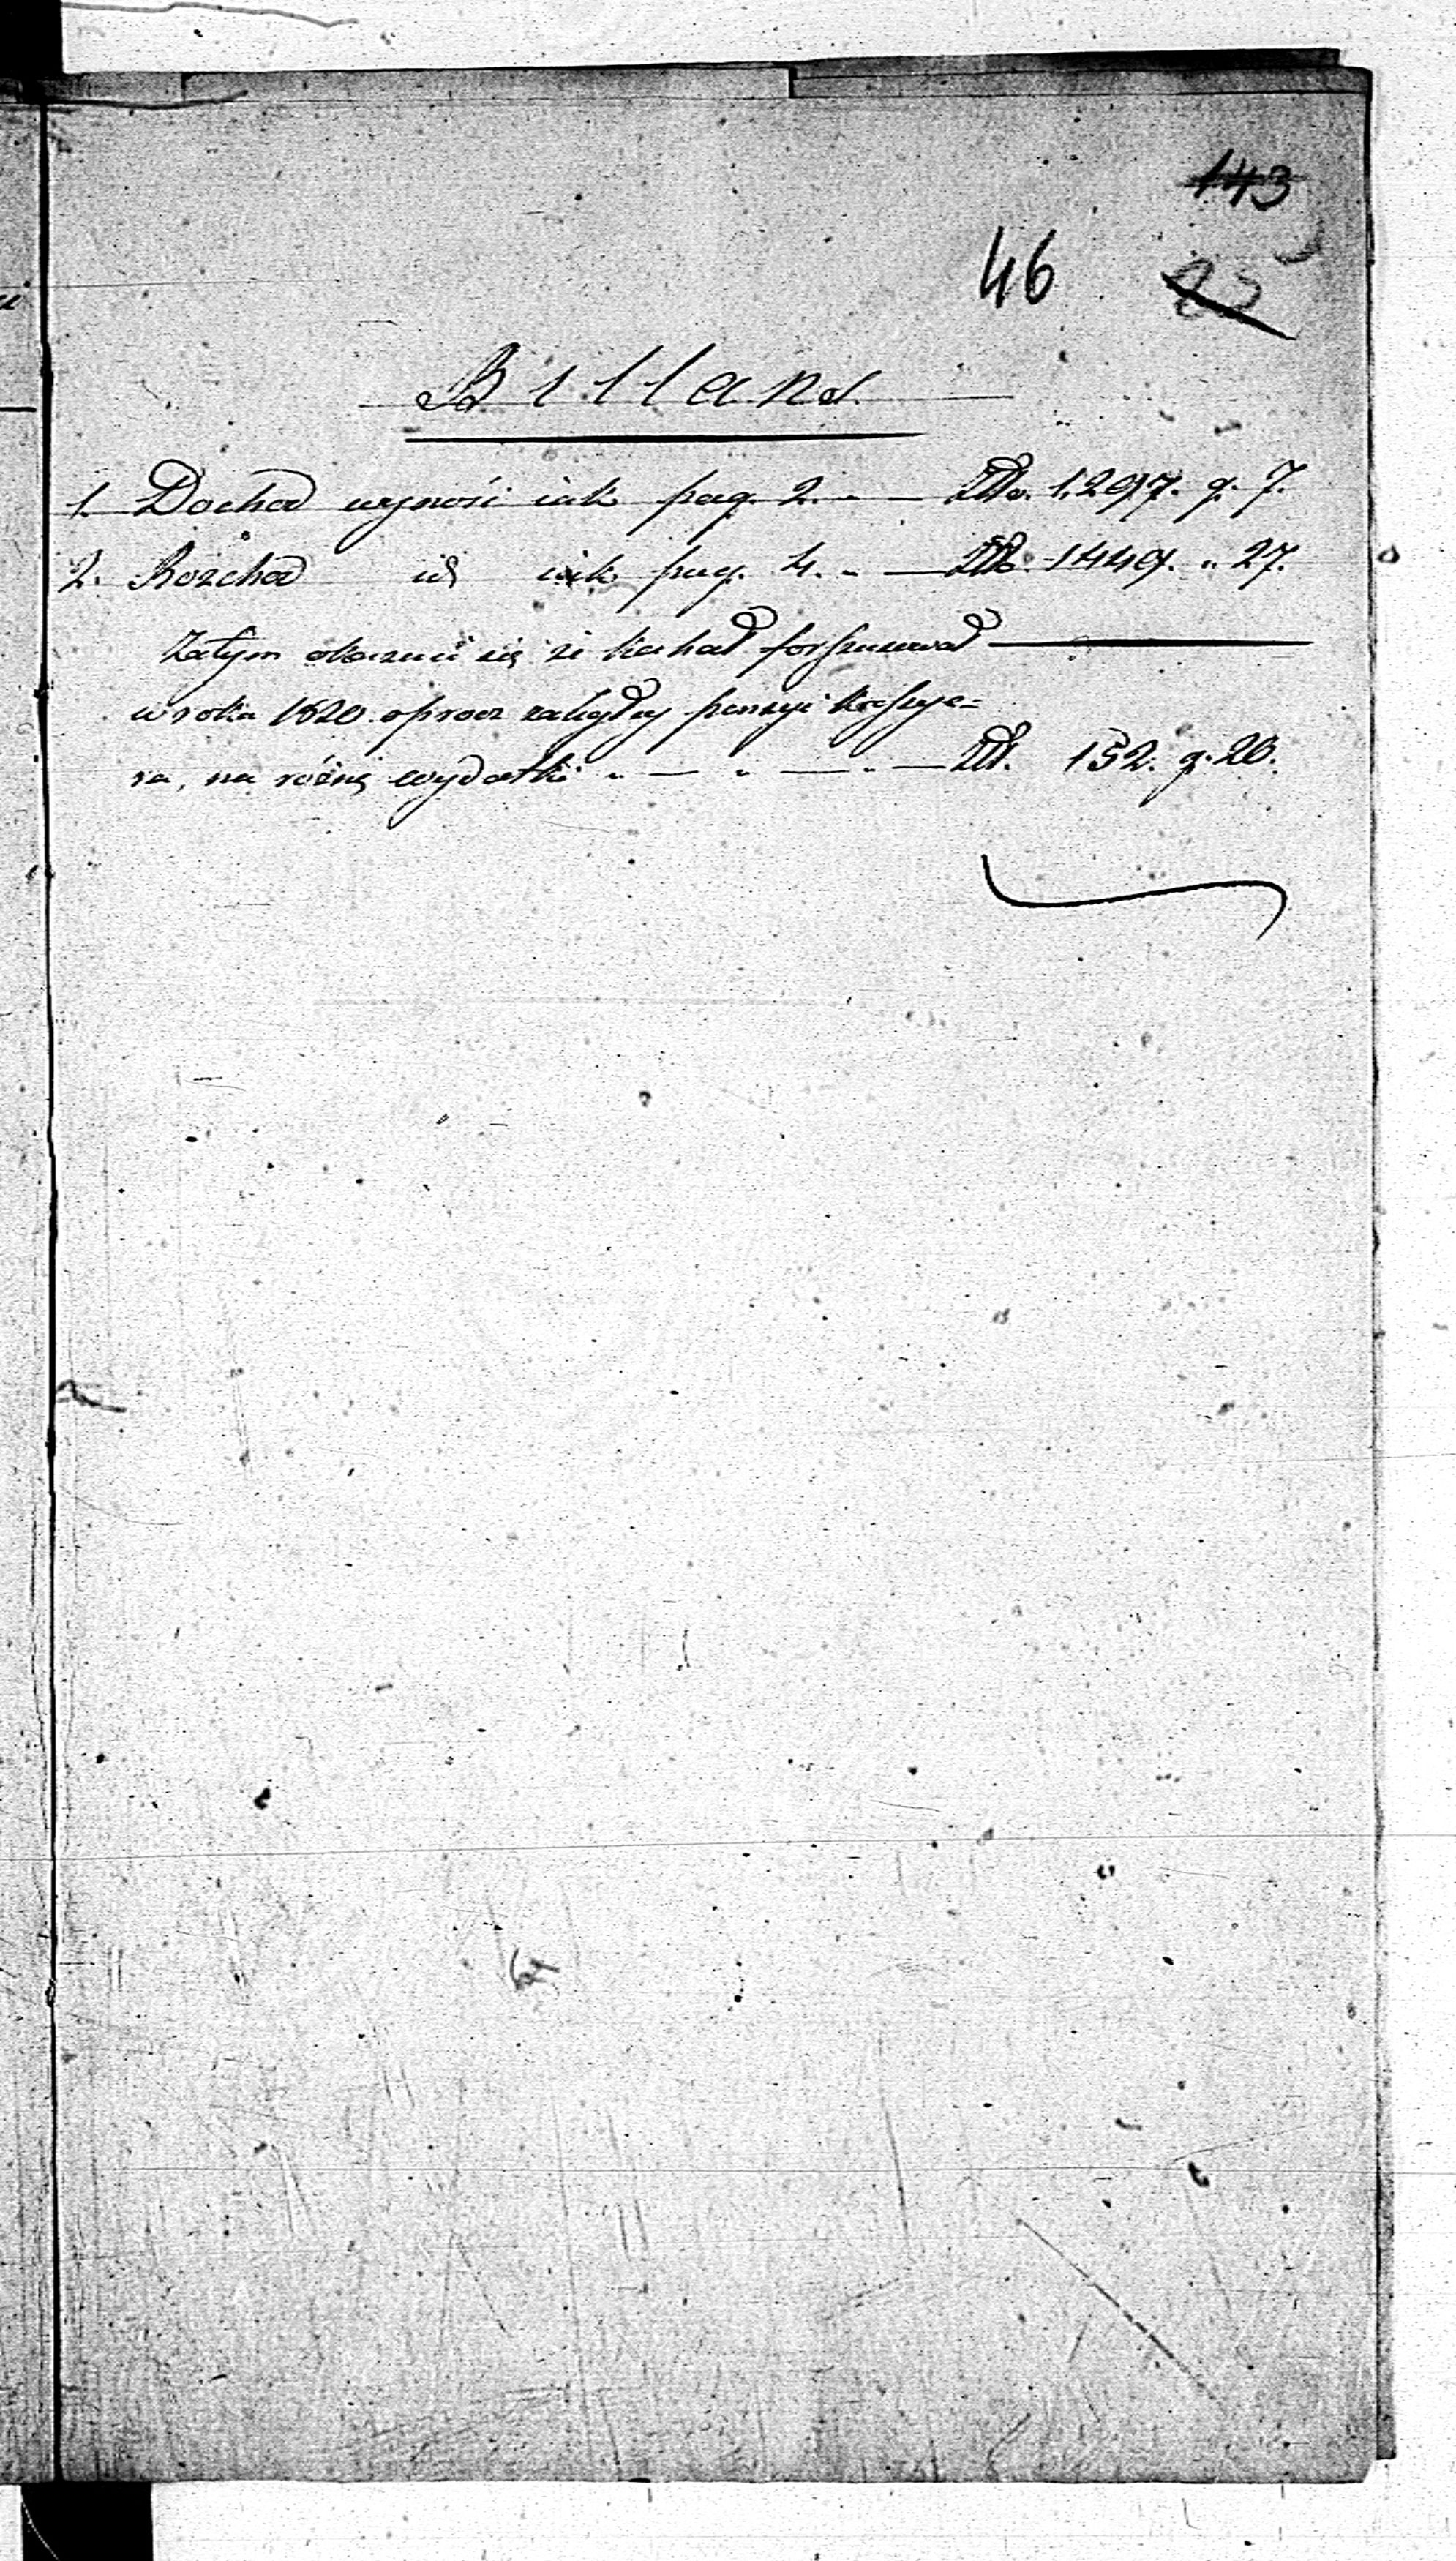 143
46
Billans
1. Dochod wynosi iak pag. 2. „ — Złł. 1,297. g. 7.
2. Rozchod id iak pag. 4. „ — Złł. 1449. „ 27.
Zatym okazuie się że kahał forszusował
w roku 1820 oprocz zaległey pensyi kassye=
ra, na różne wydatki „ — „ — „ — Złł. 152. g. 20.